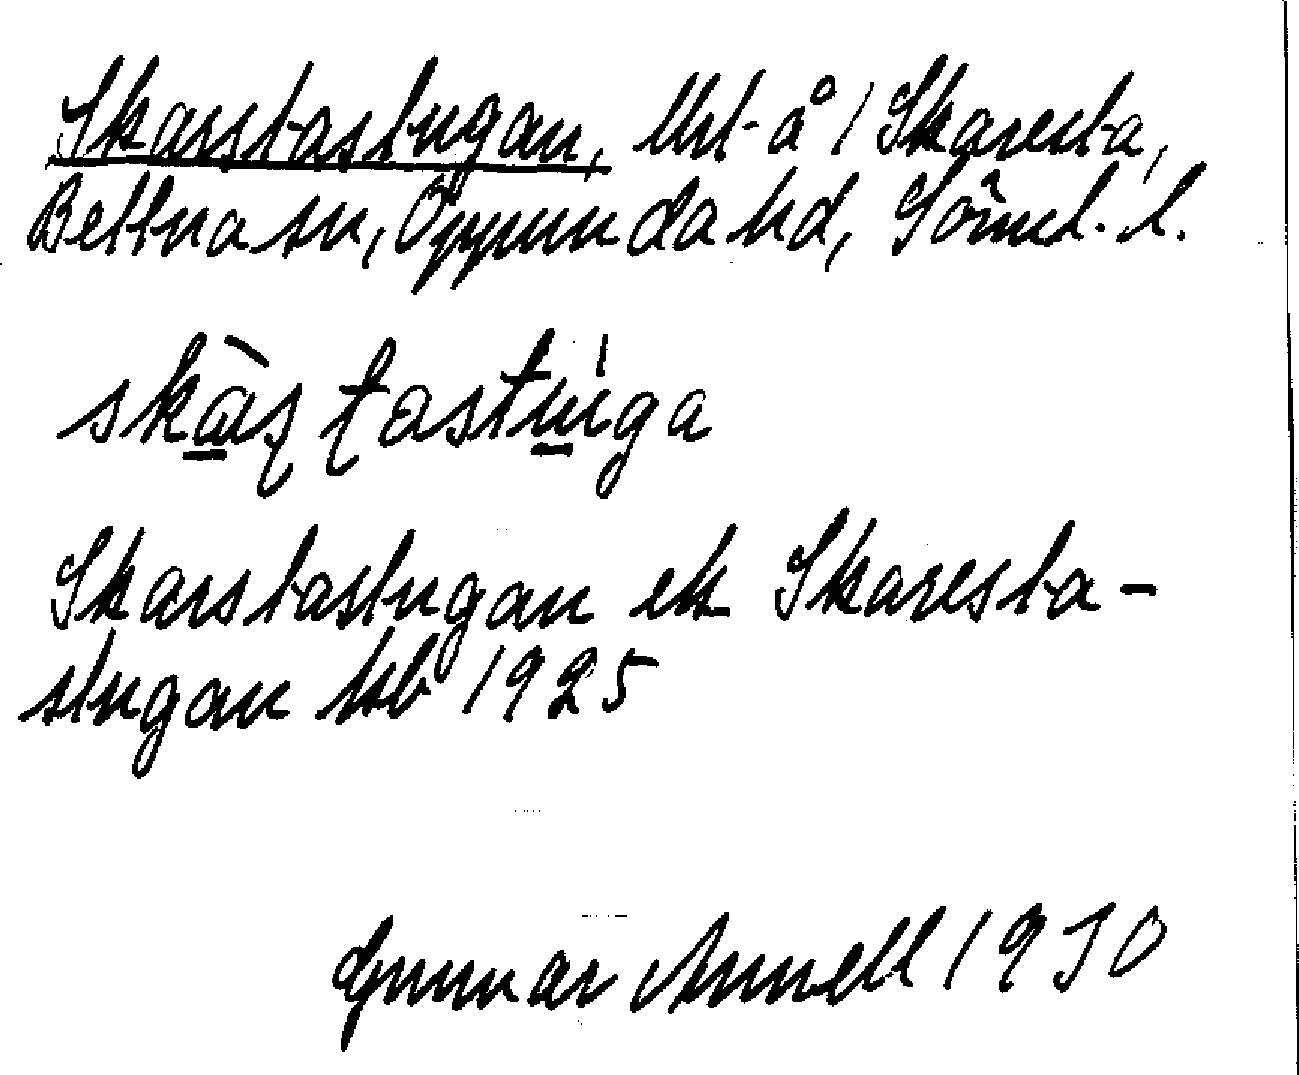 Skarstastugan, tht å 1 Skaresta,
Bettna sn, Oppunda hd, Söml. l.
skàʂʈastúga
Skarstastugan ek Skaresta-
stugan hb 1925
Gunnar Annell 1930